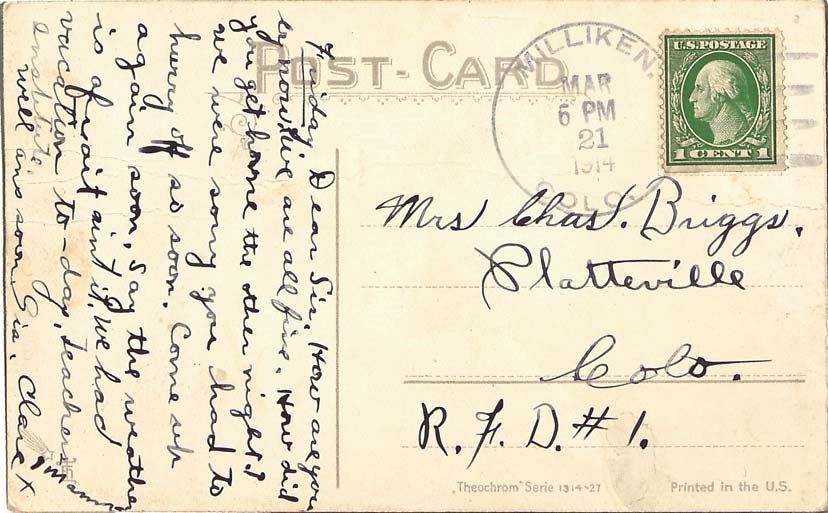 POST-CARD
MILLIKEN.
MAR
6 PM
21
1914
COLO.
U.S. POSTAGE
1 CENT 1
Friday Dear Sis, How are you
by now. We are all fine. How did
you get home the other night?
we were sorry you had to
hurry off so soon. Come up
again soon, Say the weather
is quait ain't it. We had
vacation to-day, teachers
Institute
well ans soon, Sis, Clare X
Mrs Chas. Briggs.
Platteville
Colo.
R. F. D. # 1.
„Theochrom" Serie 1314-27
Printed in the U.S.